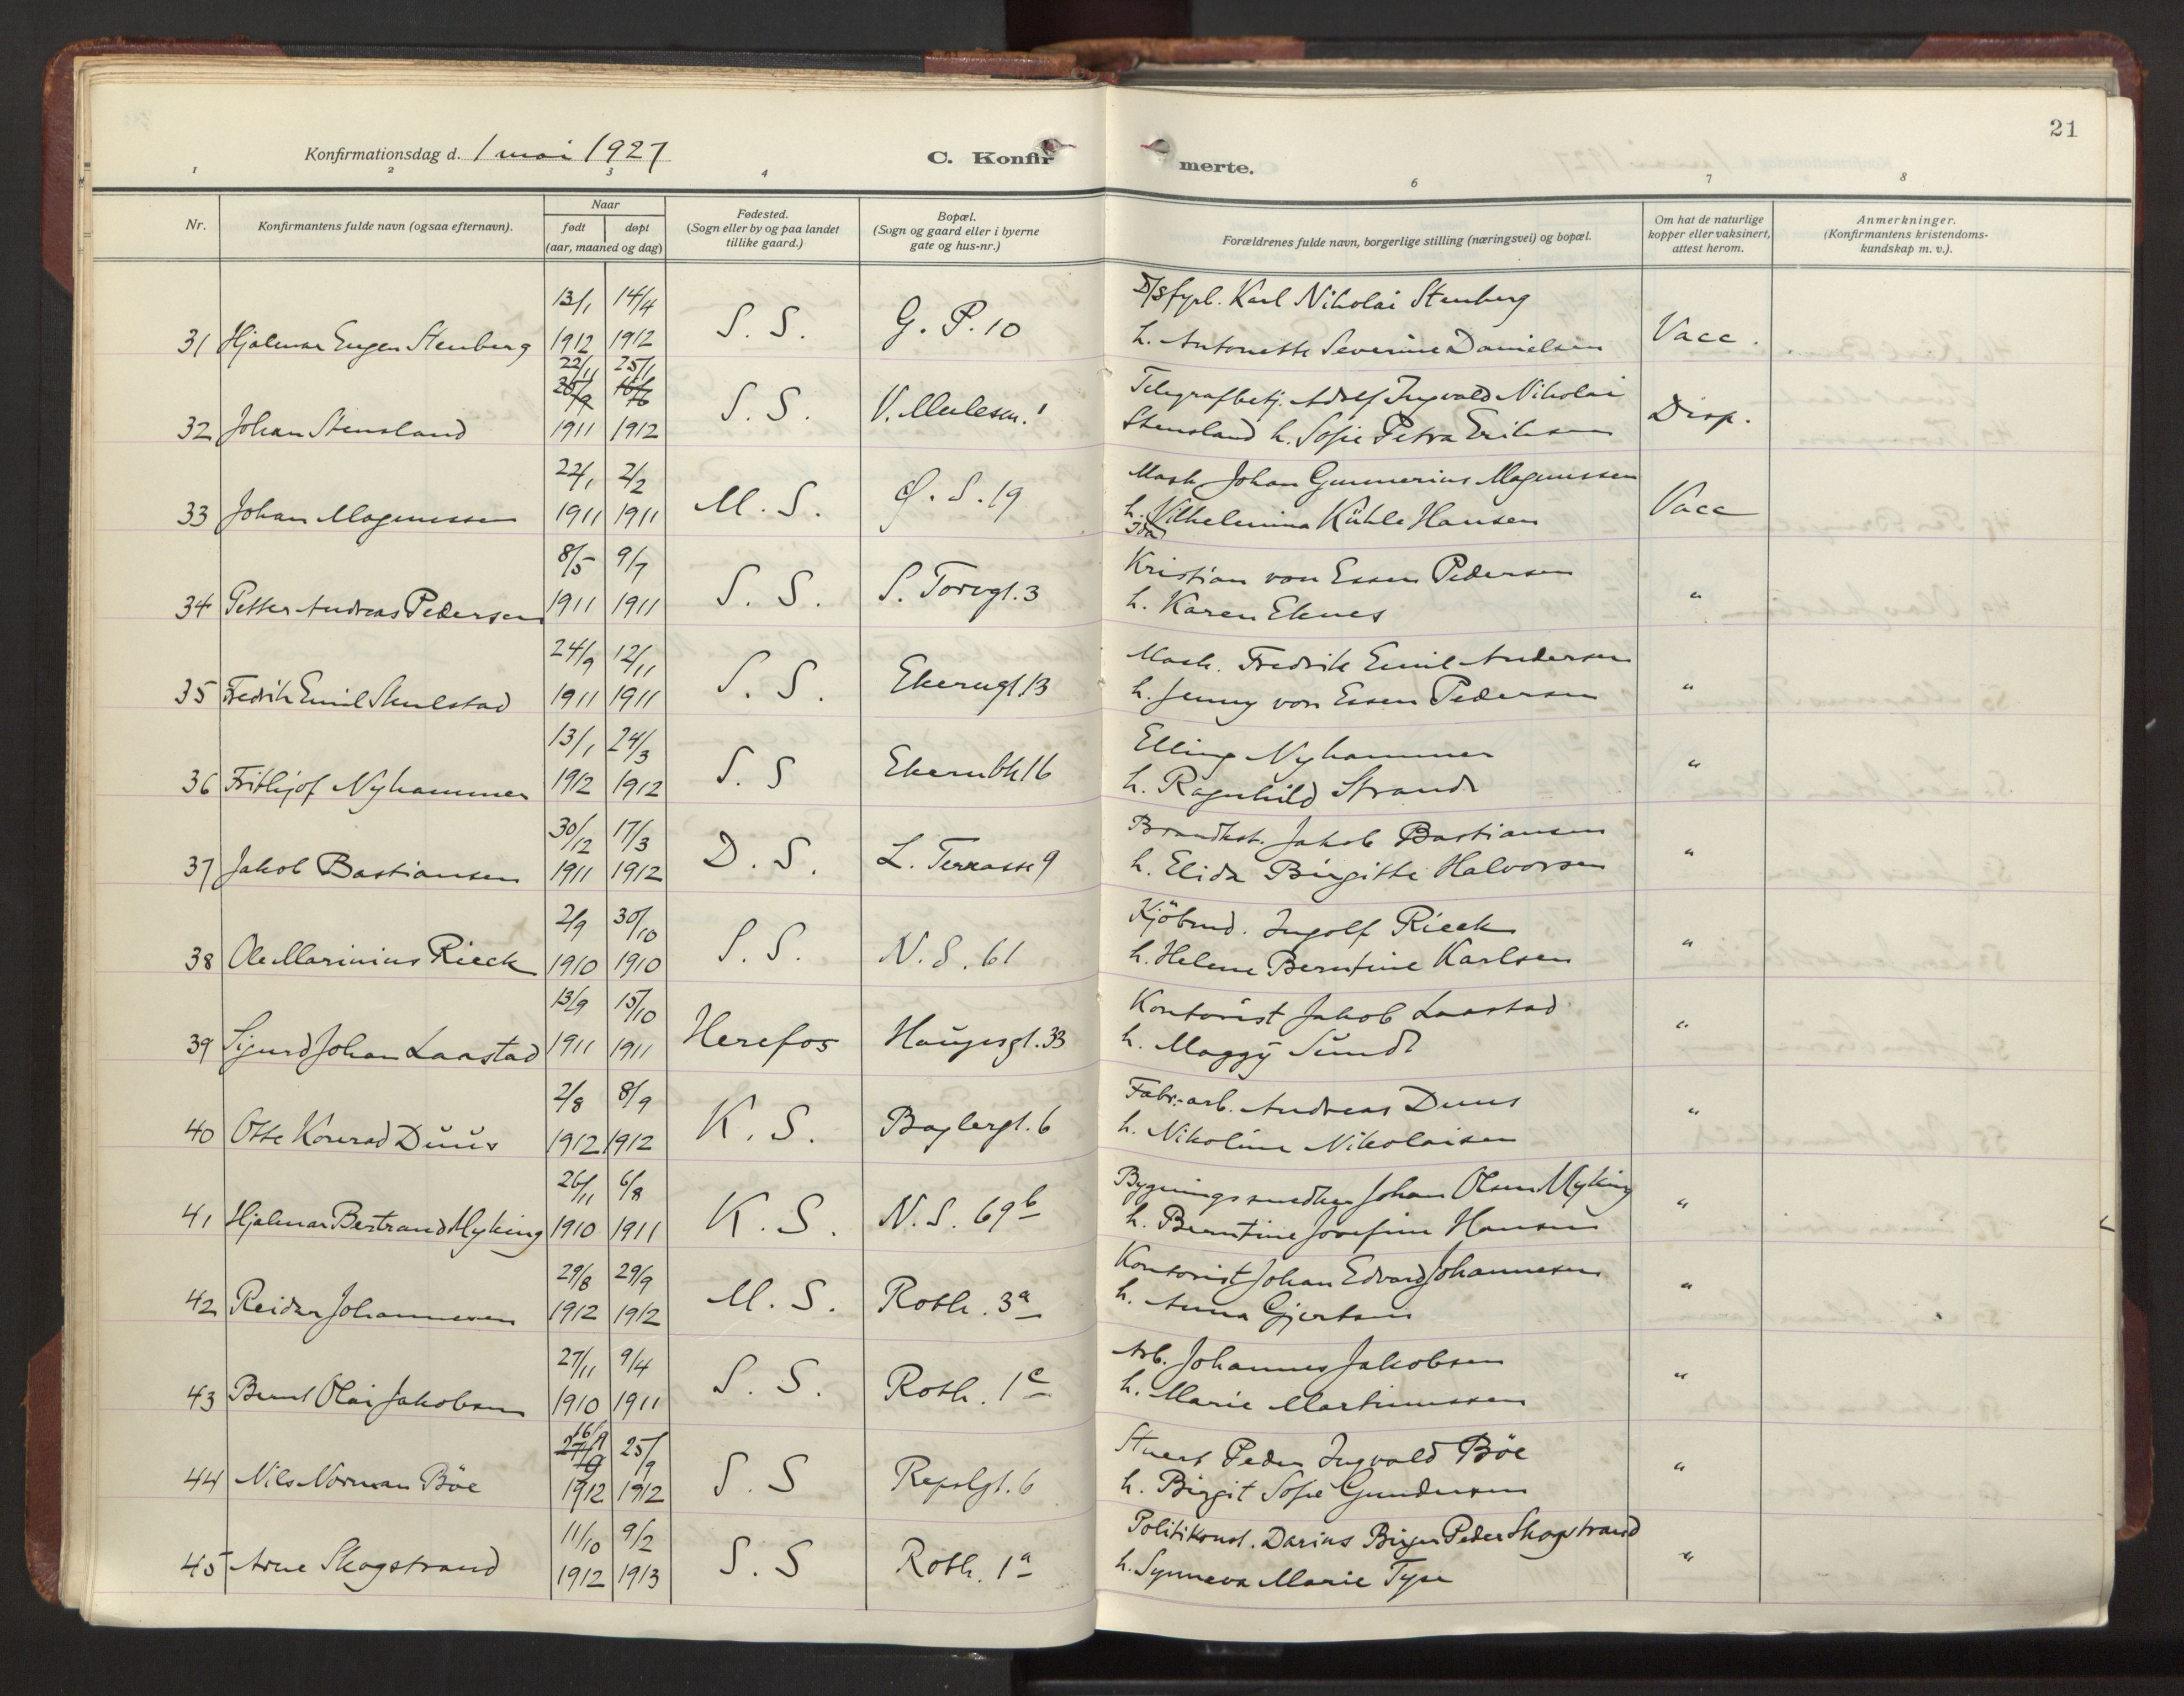 21
Konfirmationsdag d. 1 mai 1927
C. Konfirmerte.
1 2 3 4 6 7 8
Nr.
Konfirmantens fulde navn (ogsaa efternavn).
Naar
født døpt
(aar, maaned og dag)
Fødested.
(Sogn eller by og paa landet
tillike gaard.)
Bopæl.
(Sogn og gaard eller i byerne
gate og hus-nr.)
Forældrenes fulde navn, borgerlige stilling (næringsvei) og bopæl.
Om hat de naturlige
kopper eller vaksinert,
attest herom.
Anmerkninger.
(Konfirmantens kristendoms-
kundskap m. v.).
13/1 14/4 D/S fyrb. Karl Nikolai Stenberg
31 Hjalmar Eugen Stenberg 1912 1912 S. S. G. P. 10 h. Antonette Severine Danielsen Vacc.
22/11 25/1
Telegrafbetj. Adolf Ingvald Nikolai
32 Johan Stensland 1911 1912 S. S. Stensland h. Sofie Petra Eriksen Disp.
22/1 2/2 Mask Johan Gunnerius Magnussen
33 Johan Magnussen 1911 1911 M. S. Ø. S. 19 h. Vilhelmina Kühle Hansen Vacc
Ida
8/5 9/7 Kristian von Essen Pedersen
34 Petter Andreas Pedersen 1911 1911 S. S. S. Torvgt. 3 h. Karen Eknes "
24/9 12/11 Mask. Fredrik Emil Andersen
35 Fredrik Emil Skulstad 1911 1911 S. S. Ekerngt 13 h. Jenny von Essen Pedersen "
13/1 24/3 Elling Nyhammer
36 Frithjof Nyhammer 1912 1912 S. S Ekernbk 16 h. Ragnhild Strand "
30/12 17/3 Brandkst. Jakob Bastiansen
37 Jakob Bastiansen 1911 1912 D. S. L. Terrasse 9 h. Elida Birgitte Halvorsen "
2/9 30/10 Kjöbmd. Ingolf Rieck
38 Ole Marinius Rieck 1910 1910 S. S. N. S. 61 h. Helene Berntine Karlsen "
13/9 15/10 Kontorist Jakob Laastad
39 Sigurd Johan Laastad 1911 1911 Herefos Haugesgt. 33 h. Maggy Sundt "
2/8 8/9 Fabr.-arb. Andreas Duus
40 Otto Konrad Duus 1912 1912 K. S. Baglergt. 6 h. Nikoline Nikolaisen "
26/11 6/8 Bygningssnedker Johan Olsen Myking
41 Hjalmar Bertrand Myking 1910 1911 K. S. N. S. 69b h. Berntine Josefine Hansen "
29/8 29/9 Kontorist Johan Edvard Johannesen
42 Reidar Johannesen 1912 1912 M. S. Roth. 3a h. Anna Gjertsen "
27/11 9/4 Arb. Johannes Jakobsen
43 Bernt Olai Jakobsen 1910 1911 S. S. Roth. 1c h. Marie Martinussen "
16/9
27/9 25/9 Stuert Peder Ingvald Böe
44 Nils Norman Böe 1912 1912 S. S Repslgt. 6 h. Birgit Sofie Gundersen "
11/10 9/2 Politikonst. Darius Birger Peder Skogstrand
45 Arne Skogstrand 1912 1913 S. S Roth. 1a h. Synneva Marie Tyse "